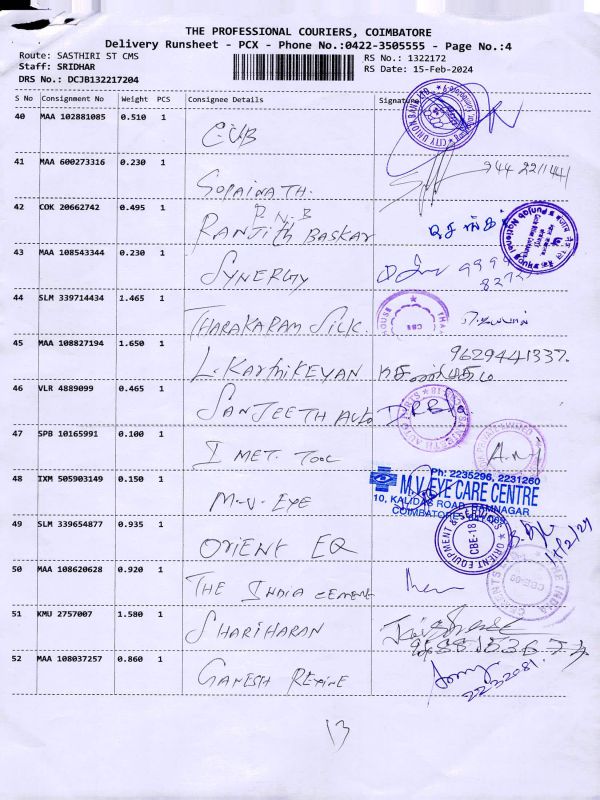 THE PROFESSIONAL COURIERS, COIMBATORE
Delivery Runsheet - PCX - Phone No.:0422-3505555 - Page No.:4
Route: SASTHIRI ST CMS
RS No.: 1322172
Staff: SRIDHAR
RS Date: 15-Feb-2024
DRS No.: DCJB132217204
S No Consignment No Weight PCS Consignee Details Signature
40 MAA 102881085 0.510 1 CUB
CITY UNION BANK LTD.
41 MAA 600273316 0.230 1 GOPAINATH.
42 COK 20662742 0.495 1 P.N.B
RANJITH BASKAR
43 MAA 108543344 0.230 1 SYNERGY
44 SLM 339714434 1.465 1 THARAKARAM SILK.
HOUSE CBE
45 MAA 108827194 1.650 1 L. KARTHIKEYAN
9629441337.
46 VLR 4889099 0.465 1 SANJEETH AUTO
47 SPB 10165991 0.100 1 I MET. TOOL
48 IXM 505903149 0.150 1 M.V. EYE
Ph: 2235296, 2231260
M.V. EYE CARE CENTRE
10, KALIDAS ROAD, RAMNAGAR
COIMBATORE
49 SLM 339654877 0.935 1 ORIENT EQ
ORIENT EQUIPMENT & SERVICES
CBE-18
50 MAA 108620628 0.920 1 THE INDIA CEMENT
51 KMU 2757007 1.580 1 SHARIHARAN
52 MAA 108037257 0.860 1 GANESH REXINE
13